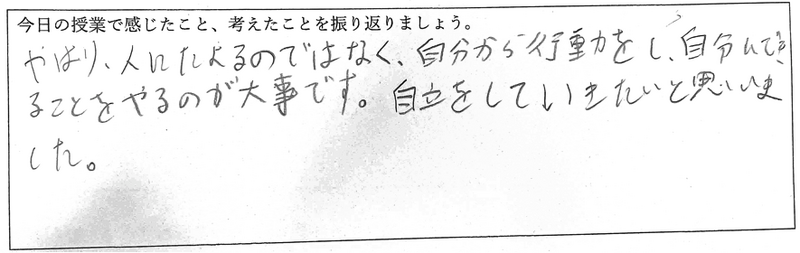 今日の授業で感じたこと、考えたことを振り返りましょう。
やはり、人にたよるのではなく、自分から行動をし、自分にでき
ることをやるのが大事です。自立をしていきたいと思いま
した。